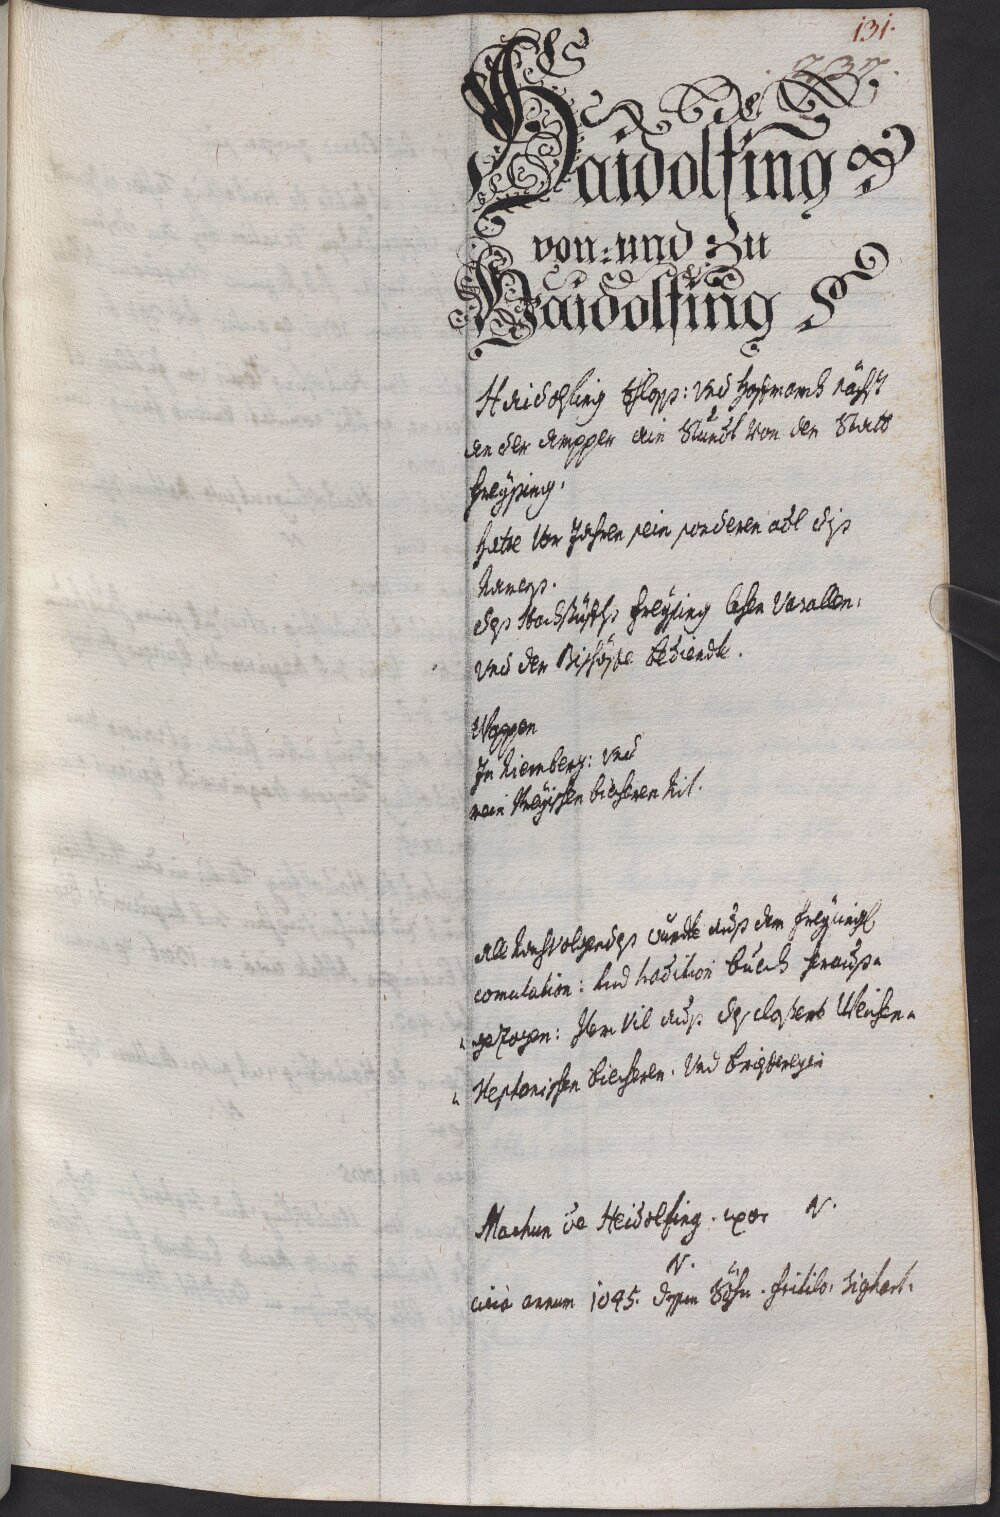 131.
237.
Haidolfing
von: und Zu
Haidolfing
Haidolfing Schloss: und Hoffmarch nächst
an der Ampper ain Stundt von der Statt
Freÿsing.
Hatte vor Jahren sein sonderen adl diss
Namens.
Dess Hochstüffts Freÿsing lehen Vasallen.
und der Bischöffe bediendte.
Wappen
In Niernberg: und
mein Preÿssen biecheren nit.
All nachvolgendes wurdte auss dem Freÿsing
comutation: und tradition buech herauss-
gezogen: Item vil auss dess closters Weichen-
Stephanischen biecheren. und brieffereyen
Machun de Heidolfing. uxor N.
N.
circa annum 1095. dessen Söhn. Fritilo. Sighart.